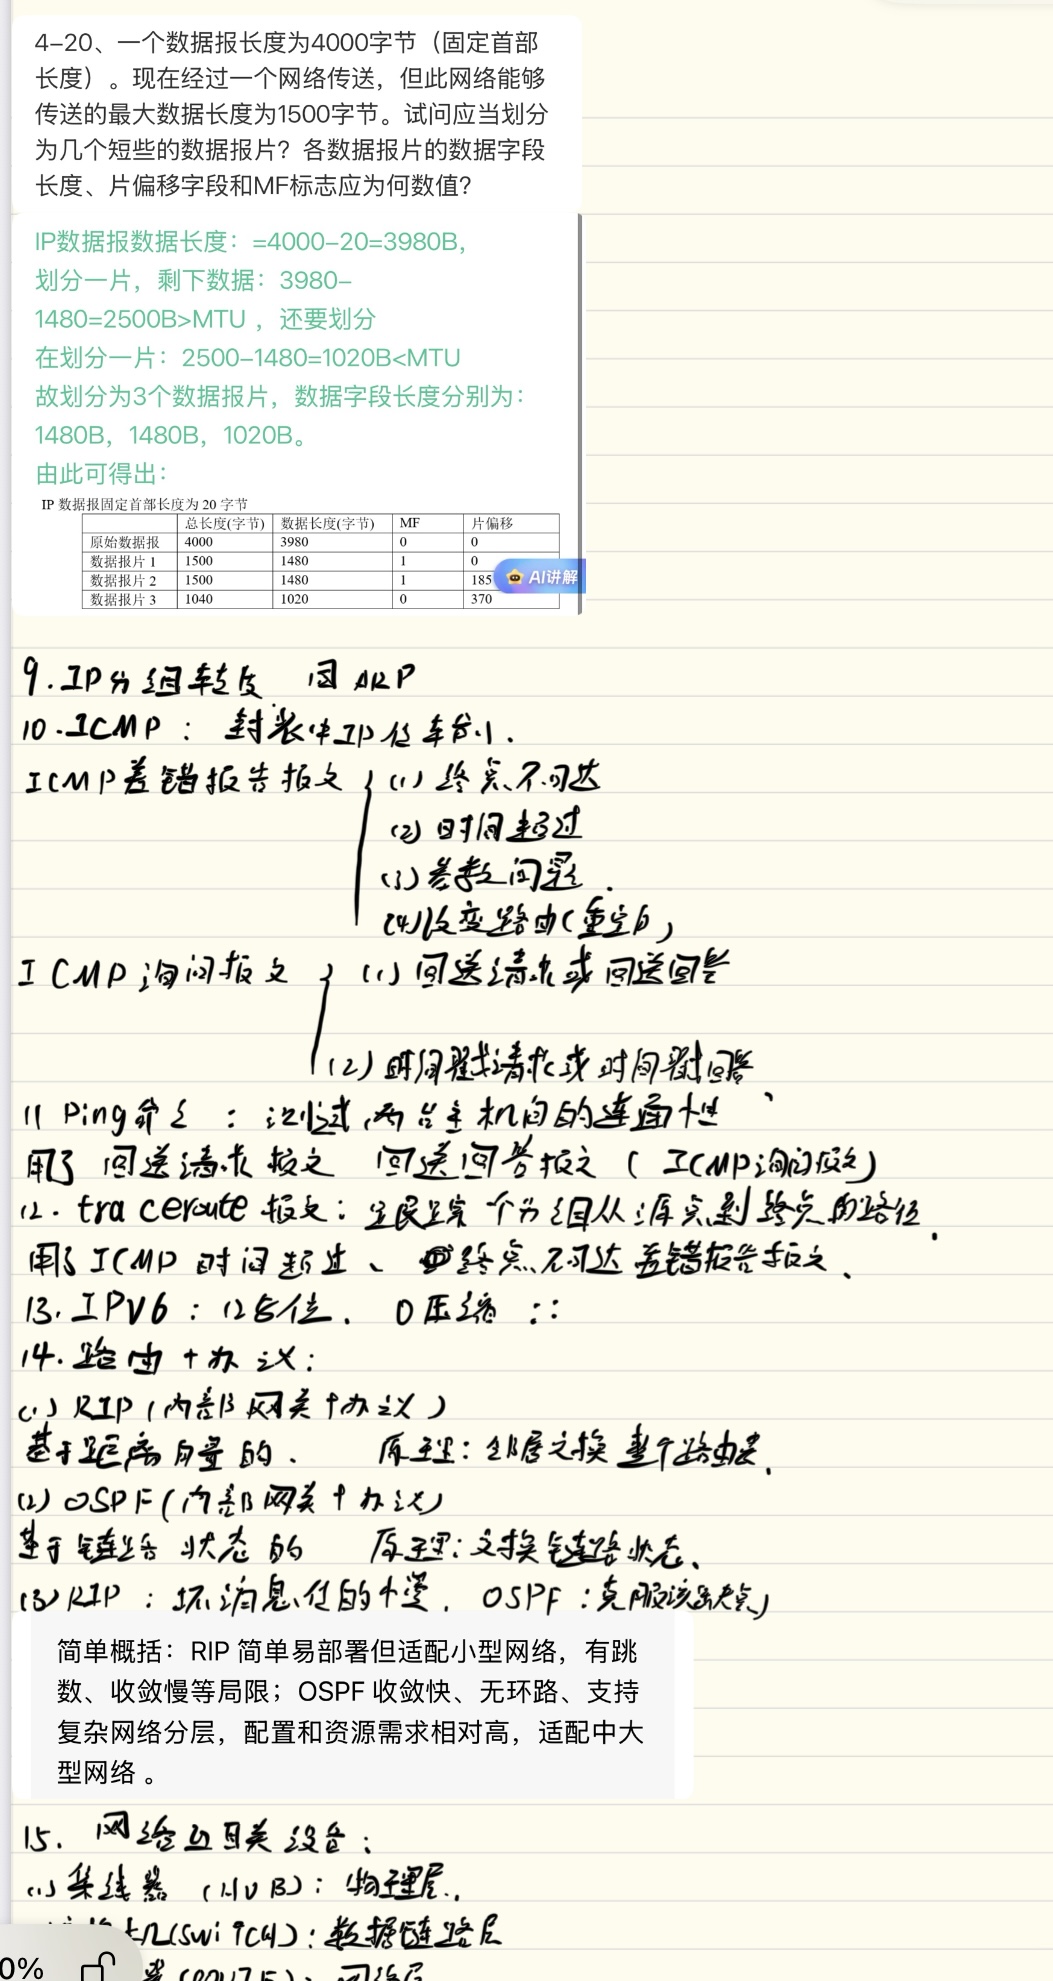 4-20、一个数据报长度为4000字节（固定首部
长度）。现在经过一个网络传送，但此网络能够
传送的最大数据长度为1500字节。试问应当划分
为几个短些的数据报片？各数据报片的数据字段
长度、片偏移字段和MF标志应为何数值？
IP数据报数据长度：=4000-20=3980B，
划分一片，剩下数据：3980-
1480=2500B>MTU ，还要划分
在划分一片：2500-1480=1020B<MTU
故划分为3个数据报片，数据字段长度分别为：
1480B，1480B，1020B。
由此可得出：
IP 数据报固定首部长度为 20 字节
总长度(字节) 数据长度(字节) MF 片偏移
原始数据报 4000 3980 0 0
数据报片 1 1500 1480 1 0
数据报片 2 1500 1480 1 185
AI讲解
数据报片 3 1040 1020 0 370
9.IP分组转发 因ARP
10.ICMP：封装中IP
ICMP差错报告报文 (1) 终点不可达
(2) 时间超过
(3) 参数问题.
(4) 改变路由(重定向)
ICMP询问报文 (1) 回送请求或回送回答
(2) 时间戳请求或时间戳回答、
11 Ping命令：测试两台主机间的连通性
用了 回送请求报文 回送回答报文 (ICMP询问报文)
12. traceroute报文：跟踪一个分组从源点到终点的路径.
用了ICMP时间超过、终点不可达差错报告报文、
13.IPV6：128位. 0压缩 ::
14.路由协议：
(1) RIP (内部网关协议)
基于距离向量的. 原理：邻居交换整个路由表.
(2) OSPF(内部网关协议)
基于链路状态的 原理：交换链路状态、
(3) RIP：坏消息传的慢. OSPF：克服该缺点)
简单概括：RIP 简单易部署但适配小型网络，有跳
数、收敛慢等局限；OSPF 收敛快、无环路、支持
复杂网络分层，配置和资源需求相对高，适配中大
型网络 。
15. 网络互联设备：
(1) 集线器 (HUB)：物理层.
机(SwiTCH)：数据链路层
0%